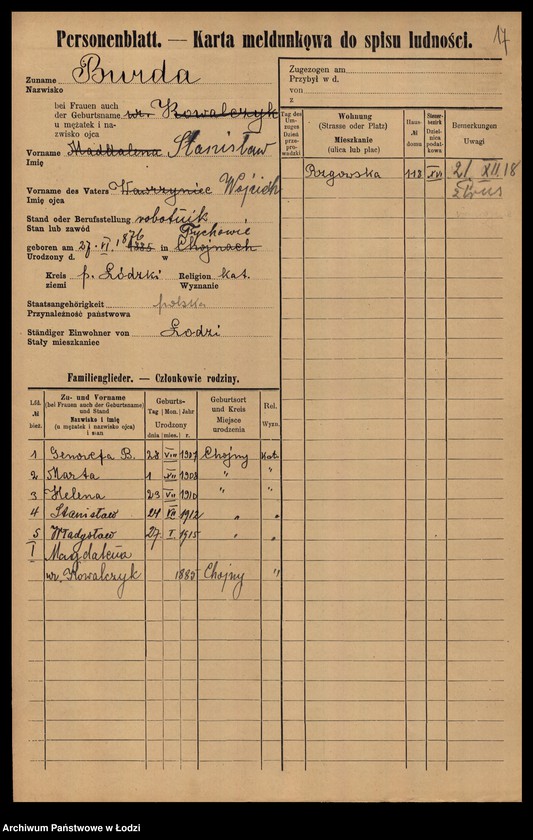 17
Personenblatt. — Karta meldunkowa do spisu ludności.
Zuname Burda
Nazwisko
bei Frauen auch
der Geburtsname ur. Kowalczyk
u mężatek i na-
zwisko ojca
Vorname Magdalena Stanisław
Imię
Vorname des Vaters Wawrzyniec Wojciech
Imię ojca
Stand oder Berufsstellung robotnik
Stan lub zawód
geboren am 27. VI. 1876 1885 in Chojnach
Urodzony d. w
Kreis p. Łódzki Religion kat.
ziemi Wyznanie
Staatsangehörigkeit polska
Przynależność państwowa
Ständiger Einwohner von Łodzi
Stały mieszkaniec
Zugezogen am
Przybył d.
von
z
Tag des Umzuges Dzień przeprowadzki
Wohnung (Strasse oder Platz) Mieszkanie (ulica lub plac)
Haus- № domu
Steuerbezirk Dzielnica podatkowa
Bemerkungen Uwagi
Rzgowska 112 XVI 21 XII 18
Familienglieder. — Członkowie rodziny.
Lfd. № bież.
Zu- und Vorname (bei Frauen auch der Geburtsname) und Stand Nazwisko i imię (u mężatek i nazwisko ojca) i stan
Geburts- Tag Mon. Jahr Urodzony dnia mies. r.
Geburtsort und Kreis Miejsce urodzenia
Rel. Wyzn.
1 Genowefa B. 28 VIII 1907 Chojny kat.
2 Marta 1 XII 1908 " "
3 Helena 23 VII 1910 " "
4 Stanisław 24 XII 1912 " "
5 Władysław 27. I 1915 " "
I Magdalena
ur. Kowalczyk 1885 Chojny "
Archiwum Państwowe w Łodzi